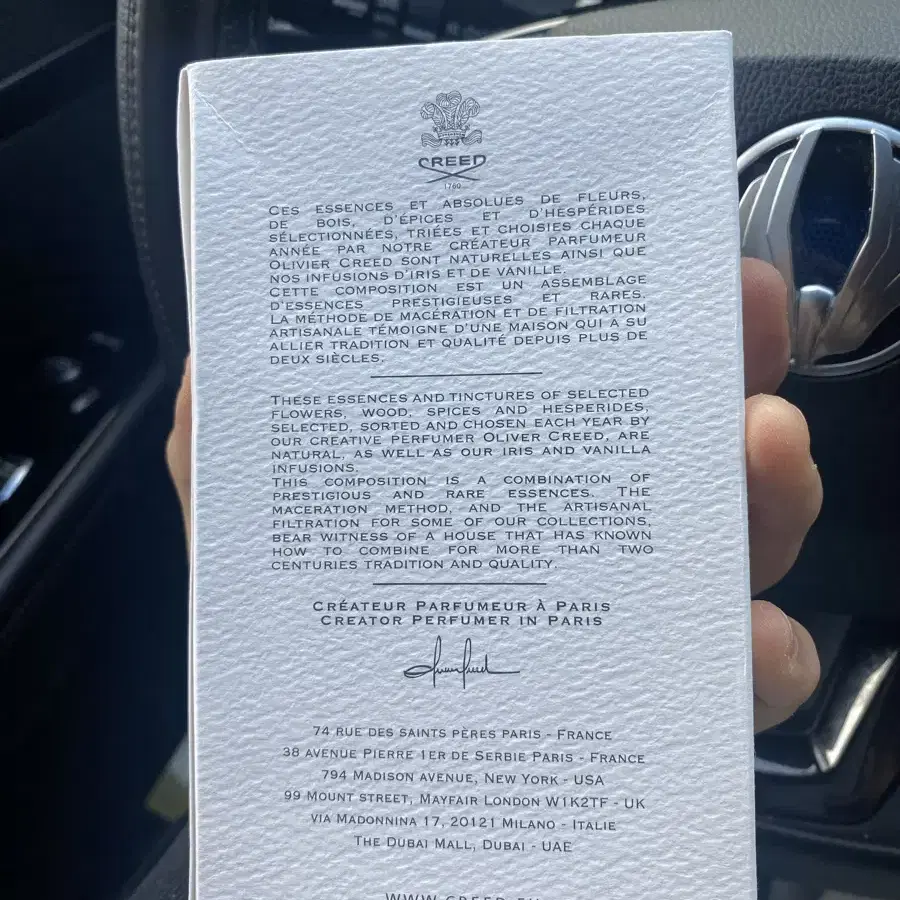 CREED
1760
CES ESSENCES ET ABSOLUES DE FLEURS,
DE BOIS, D'ÉPICES ET D'HESPÉRIDES
SÉLECTIONNÉES, TRIÉES ET CHOISIES CHAQUE
ANNÉE PAR NOTRE CRÉATEUR PARFUMEUR
OLIVIER CREED SONT NATURELLES AINSI QUE
NOS INFUSIONS D'IRIS ET DE VANILLE.
CETTE COMPOSITION EST UN ASSEMBLAGE
D'ESSENCES PRESTIGIEUSES ET RARES.
LA MÉTHODE DE MACÉRATION ET DE FILTRATION
ARTISANALE TÉMOIGNE D'UNE MAISON QUI A SU
ALLIER TRADITION ET QUALITÉ DEPUIS PLUS DE
DEUX SIÈCLES.
THESE ESSENCES AND TINCTURES OF SELECTED
FLOWERS, WOOD, SPICES AND HESPERIDES,
SELECTED, SORTED AND CHOSEN EACH YEAR BY
OUR CREATIVE PERFUMER OLIVER CREED, ARE
NATURAL, AS WELL AS OUR IRIS AND VANILLA
INFUSIONS.
THIS COMPOSITION IS A COMBINATION OF
PRESTIGIOUS AND RARE ESSENCES. THE
MACERATION METHOD, AND THE ARTISANAL
FILTRATION FOR SOME OF OUR COLLECTIONS,
BEAR WITNESS OF A HOUSE THAT HAS KNOWN
HOW TO COMBINE FOR MORE THAN TWO
CENTURIES TRADITION AND QUALITY.
CRÉATEUR PARFUMEUR À PARIS
CREATOR PERFUMER IN PARIS
74 RUE DES SAINTS PÈRES PARIS - FRANCE
38 AVENUE PIERRE 1ER DE SERBIE PARIS - FRANCE
794 MADISON AVENUE, NEW YORK - USA
99 MOUNT STREET, MAYFAIR LONDON W1K2TF - UK
VIA MADONNINA 17, 20121 MILANO - ITALIE
THE DUBAI MALL, DUBAI - UAE